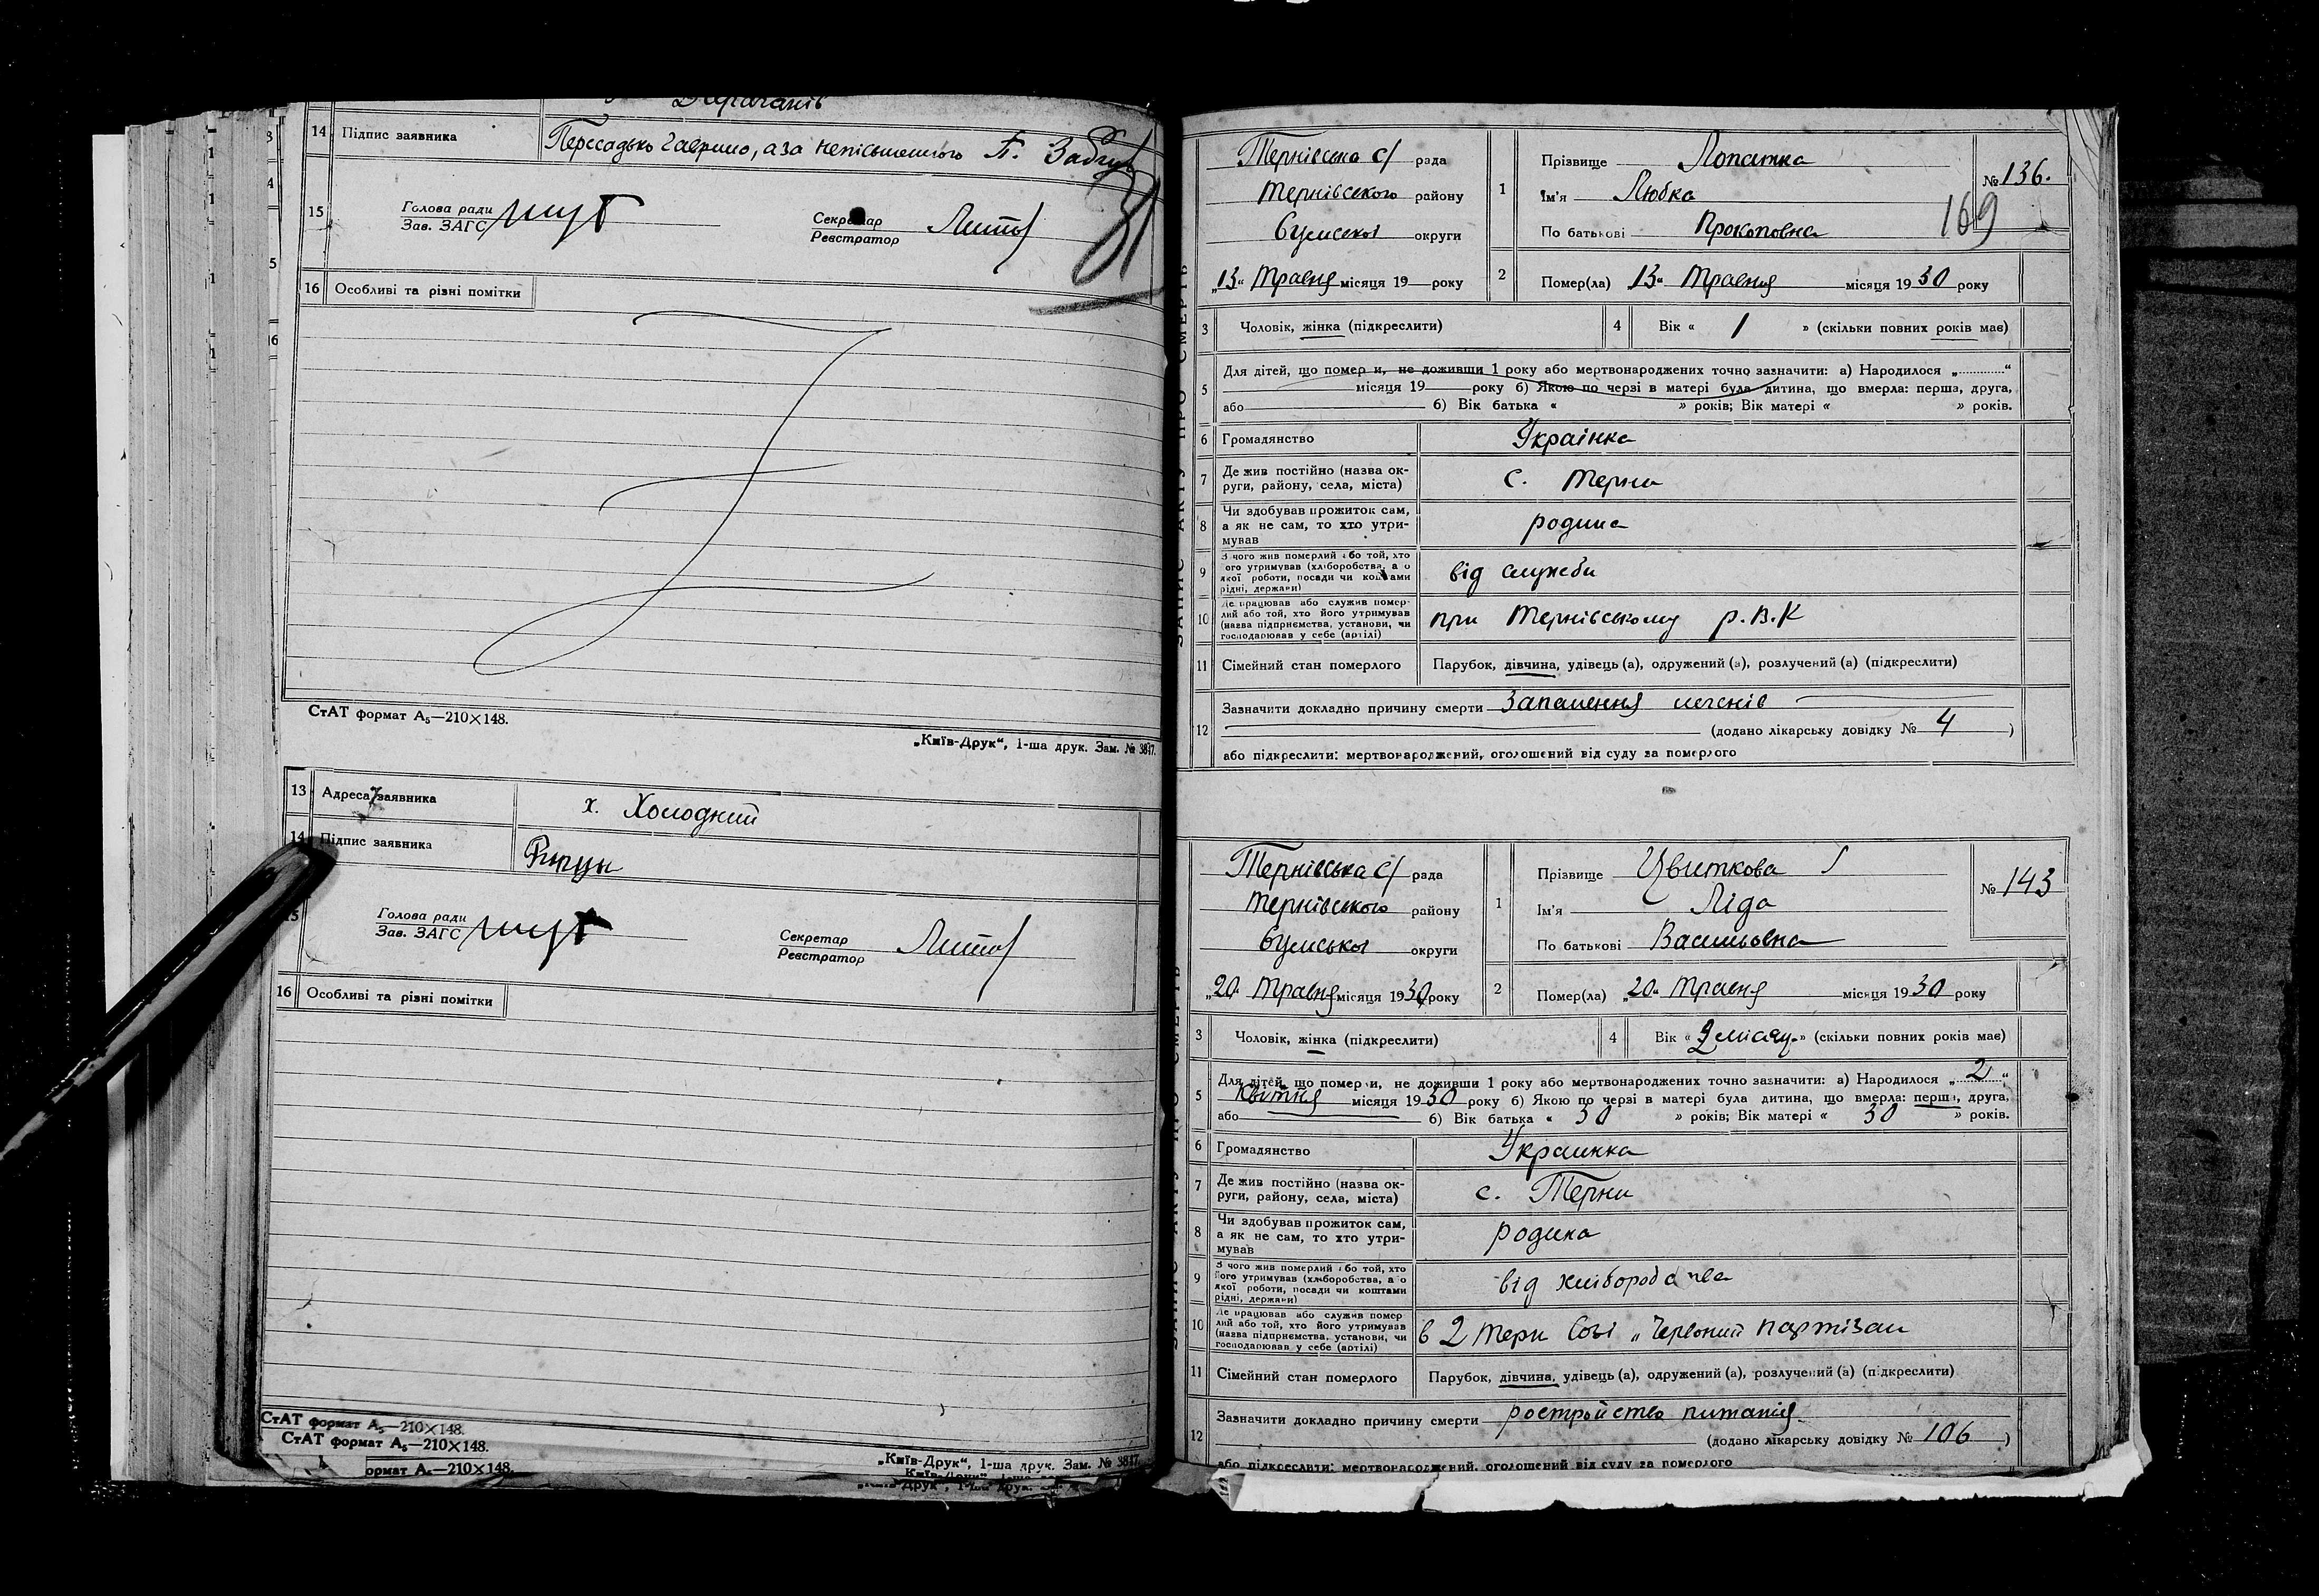 14 Підпис заявника Пересадько Гаврило, а за неписьменого П.
15 Голова ради
Зав. ЗАГС
Секретар
Реєстратор
16 Особливі та різні помітки
СтАТ формат А₅—210×148.
„Київ-Друк“, 1-ша друк. Зам. № 3847.
13 Адреса заявника х. Холодний
14 Підпис заявника
Голова ради
Зав. ЗАГС
Секретар
Реєстратор
16 Особливі та різні помітки
СтАТ формат А₅—210×148.
СтАТ формат А₅—210×148.
ормат А₅—210×148.
„Київ-Друк“, 1-ша друк. Зам. № 3847.
Тернівська с/ рада
Тернівського району
Сумської округи
„13“ Травня місяця 19 року
1 Прізвище Лопатка
Ім'я Любка
По батькові Прокоповна
№ 136.
169
2 Помер(ла) 13“ Травня місяця 1930 року
3 Чоловік, жінка (підкреслити)
4 Вік « 1 » (скільки повних років має)
5 Для дітей, що померли, не доживши 1 року або мертвонароджених точно зазначити: а) Народилося „ “
місяця 19 року б) Якою по черзі в матері була дитина, що вмерла: перша, друга,
або б) Вік батька « » років; Вік матері « » років.
6 Громадянство Украінка
7 Де жив постійно (назва ок-
руги, району, села, міста) с. Терни
8 Чи здобував прожиток сам,
а як не сам, то хто утри-
мував родина
9 З чого жив померлий або той, хто
його утримував (хліборобства, а о
якої роботи, посади чи коштами
рідні, держави) від служби
10 Де працював або служив помер-
лий або той, хто його утримував
(назва підприємства, установи, чи
господарював у себе (артілі) при Тернівському р.В.К
11 Сімейний стан померлого Парубок, дівчина, удівець (а), одружений (а), розлучений (а) (підкреслити)
12 Зазначити докладно причину смерти Запалення легенів
(додано лікарську довідку № 4 )
або підкреслити: мертвонароджений, оголошений від суду за померлого
Тернівська с/ рада
Тернівського району
Сумської округи
„20“ Травня місяця 1930 року
1 Прізвище Цвиткова
Ім'я Ліда
По батькові Васильовна
№ 143
2 Помер(ла) „20“ Травня місяця 1930 року
3 Чоловік, жінка (підкреслити)
4 Вік « місяц. » (скільки повних років має)
5 Для дітей, що померли, не доживши 1 року або мертвонароджених точно зазначити: а) Народилося „ 2 “
Квітня місяця 1930 року б) Якою по черзі в матері була дитина, що вмерла: перша, друга,
або б) Вік батька « 30 » років; Вік матері « 30 » років.
6 Громадянство Украинка
7 Де жив постійно (назва ок-
руги, району, села, міста) с. Терни
8 Чи здобував прожиток сам,
а як не сам, то хто утри-
мував родина
9 З чого жив померлий або той, хто
його утримував (хліборобства, а о
якої роботи, посади чи коштами
рідні, держави) від хліборобства
10 Де працював або служив помер
лий або той, хто його утримував
(назва підприємства, установи, чи
господарював у себе (артілі) в 2 Терн Созі „Червоний партізан
11 Сімейний стан померлого Парубок, дівчина, удівець (а), одружений (а), розлучений (а) (підкреслити)
12 Зазначити докладно причину смерти ростройство питанія
(додано лікарську довідку № 106 )
або підкреслити: мертвонароджений, оголошений від суду за померлого